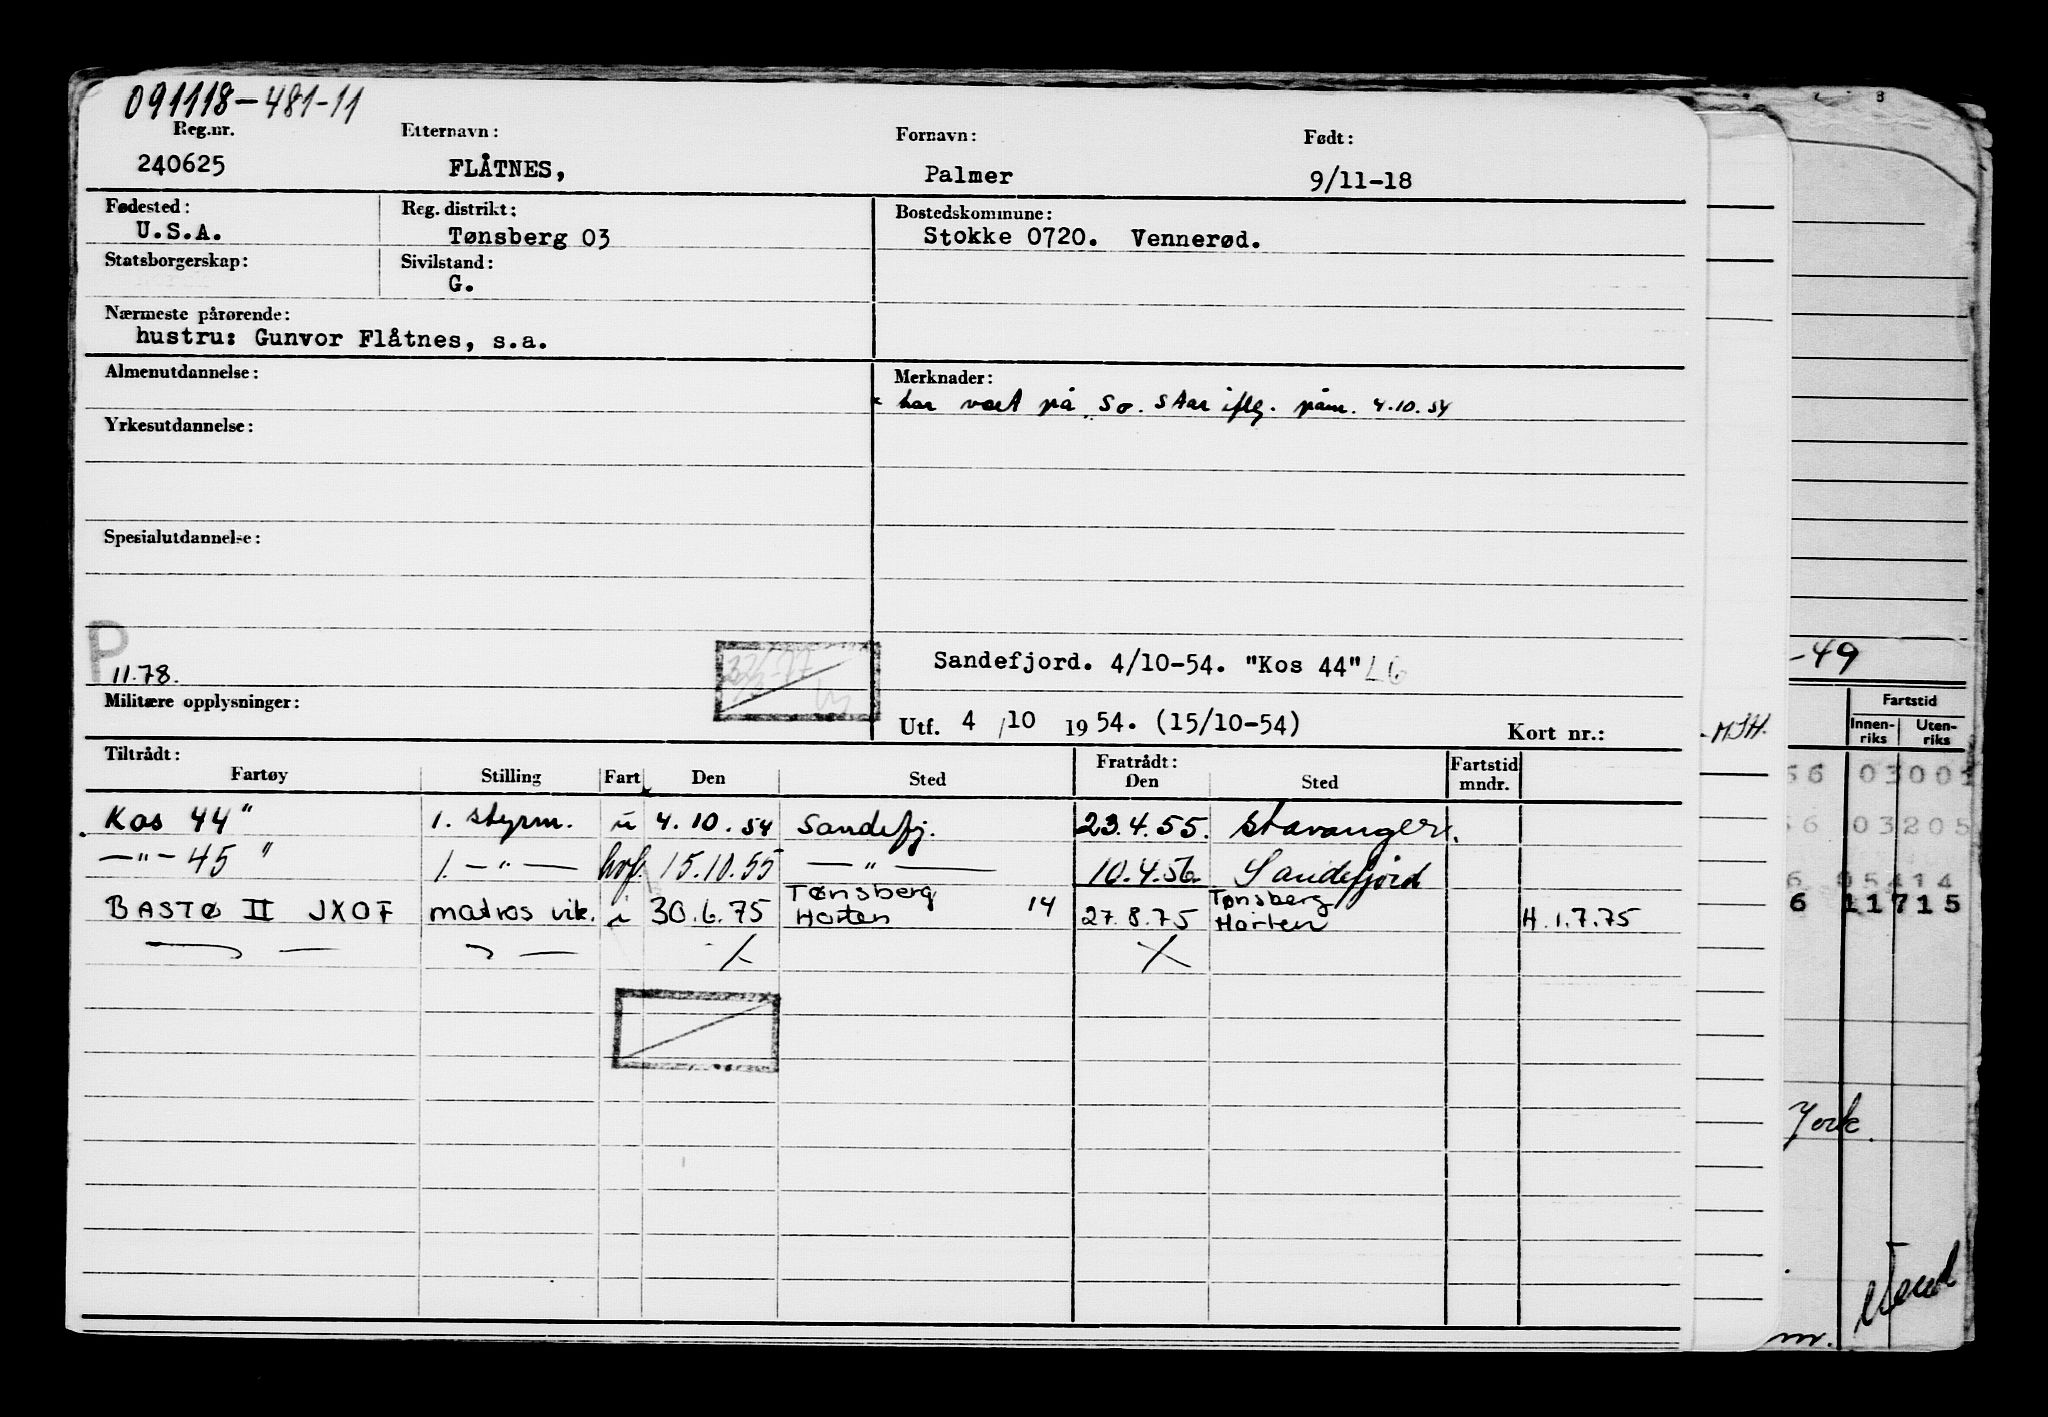 091118-481-11
Reg.nr. Etternavn: Fornavn: Født:
240625 FLÅTNES, Palmer 9/11-18
Fødested: Reg. distrikt: Bostedskommune:
U.S.A. Tønsberg 03 Stokke 0720. Vennerød.
Statsborgerskap: Sivilstand:
G.
Nærmeste pårørende:
hustru: Gunvor Flåtnes, s.a.
Almenutdannelse: Merknader:
har vært på So. Star iflg. påm. 4.10.54
Yrkesutdannelse:
Spesialutdannelse:
P
11.78.
Sandefjord. 4/10-54. "Kos 44" LG
Militære opplysninger:
Utf. 4/10 1954. (15/10-54) Kort nr.:
Tiltrådt: Fratrådt: Fartstid
Fartøy Stilling Fart Den Sted Den Sted mndr.
Kos 44" 1. styrm. u 4.10.54 Sandefj. 23.4.55. Stavanger.
—"— 45" 1. —"— hvf. 15.10.55 —"— 10.4.56. Sandefjord
BASTØ II JXOF matros vik. i 30.6.75 Tønsberg 14 27.8.75 Tønsberg H. 1.7.75
Horten Horten
-49
Fartstid
Innen-riks Uten-riks
M.S.H.
56 0300
56 03205
6 05414
6 11715
York.
m.